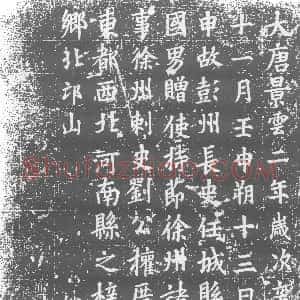 大唐景雲二年歲次
十一月壬申朔十三日
申故彭州長史任城縣
國男贈使持節徐州諸
事徐州刺史劉公權厝
東都西北河南縣之梓
鄉北邙山